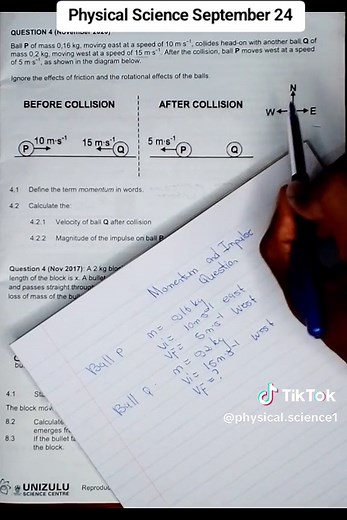 Physical Science September 24
QUESTION 4 (November 2020)
Ball P of mass 0,16 kg, moving east at a speed of 10 m·s⁻¹, collides head-on with another ball Q of
mass 0,2 kg, moving west at a speed of 15 m·s⁻¹. After the collision, ball P moves west at a speed
of 5 m·s⁻¹, as shown in the diagram below.
Ignore the effects of friction and the rotational effects of the balls.
BEFORE COLLISION
AFTER COLLISION
N
W
E
10 m·s⁻¹
15 m·s⁻¹
5 m·s⁻¹
P
Q
P
Q
4.1 Define the term momentum in words.
4.2 Calculate the:
4.2.1 Velocity of ball Q after collision
4.2.2 Magnitude of the impulse on ball P
Question 4 (Nov 2017): A 2 kg
length of the block is x. A bullet
and passes straight through
loss of mass of the
Momentum and Impulse
Question
Ball P m = 0,16 kg
Vi = 10 m·s⁻¹ east
Vf = 5 m·s⁻¹ west
Ball Q. m = 0,2 kg
Vi = 15 m·s⁻¹ west
Vf = ?
4.1
The block
8.2 Calculate
emerges
8.3 If the bullet
the block.
TikTok
@physical.science1
UNIZULU
SCIENCE CENTRE